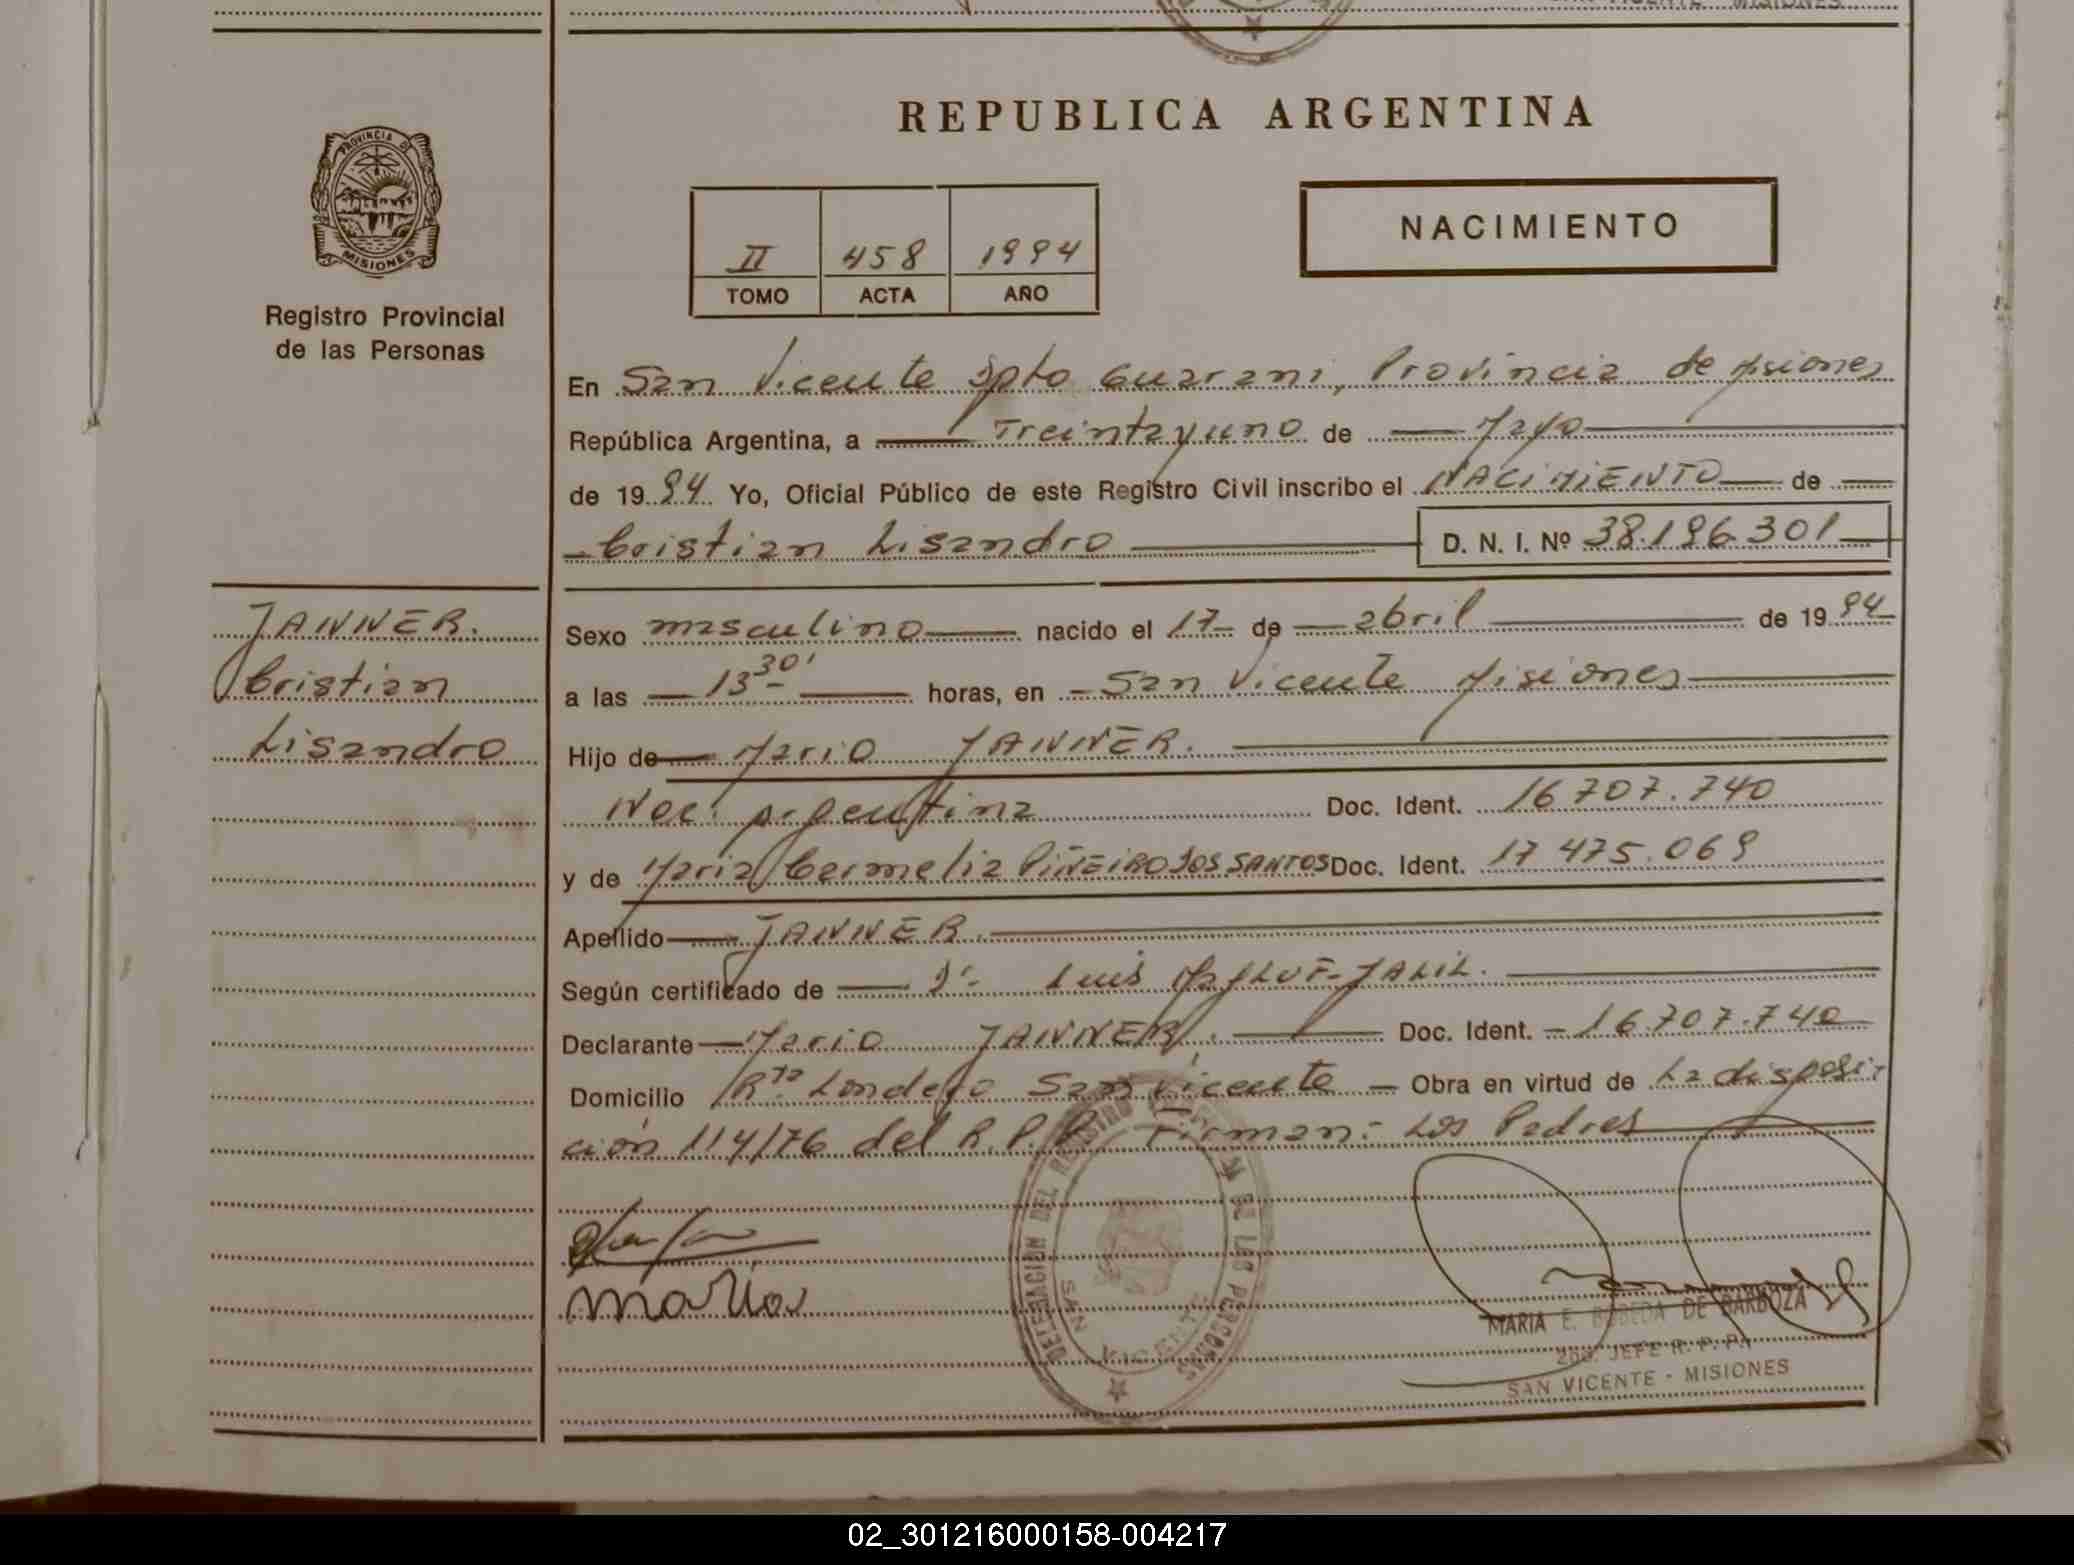 REPUBLICA ARGENTINA
PROVINCIA DE
MISIONES
Registro Provincial
de las Personas
II 458 1994
TOMO ACTA AÑO
NACIMIENTO
En San Vicente Dpto Guarani, Provincia de Misiones
República Argentina, a Treintayuno de Mayo
de 1994 Yo, Oficial Público de este Registro Civil inscribo el NACIMIENTO de
Cristian Lisandro D. N. I. Nº 38.196.301
JANNER.
Cristian
Lisandro
Sexo masculino nacido el 17 de abril de 1994
a las 13 30' horas, en San Vicente Misiones
Hijo de Mario JANNER.
Nac. Argentina Doc. Ident. 16 707.740
y de Maria Carmelia PIÑEIRO DOS SANTOS Doc. Ident. 17 475.069
Apellido JANNER.
Según certificado de Dr. Luis JALIL.
Declarante Mario JANNER. Doc. Ident. 16.707.740
Domicilio Rta. Londero San Vicente Obra en virtud de La disposi-
ción 114/76 del R.P.P. Firman: Los Padres
DELEGACION DEL REGISTRO DE LAS PERSONAS
SAN VICENTE
MARIA E. BOBEDA DE BARBOZA
2do. JEFE R. P. P.
SAN VICENTE - MISIONES
02_301216000158-004217